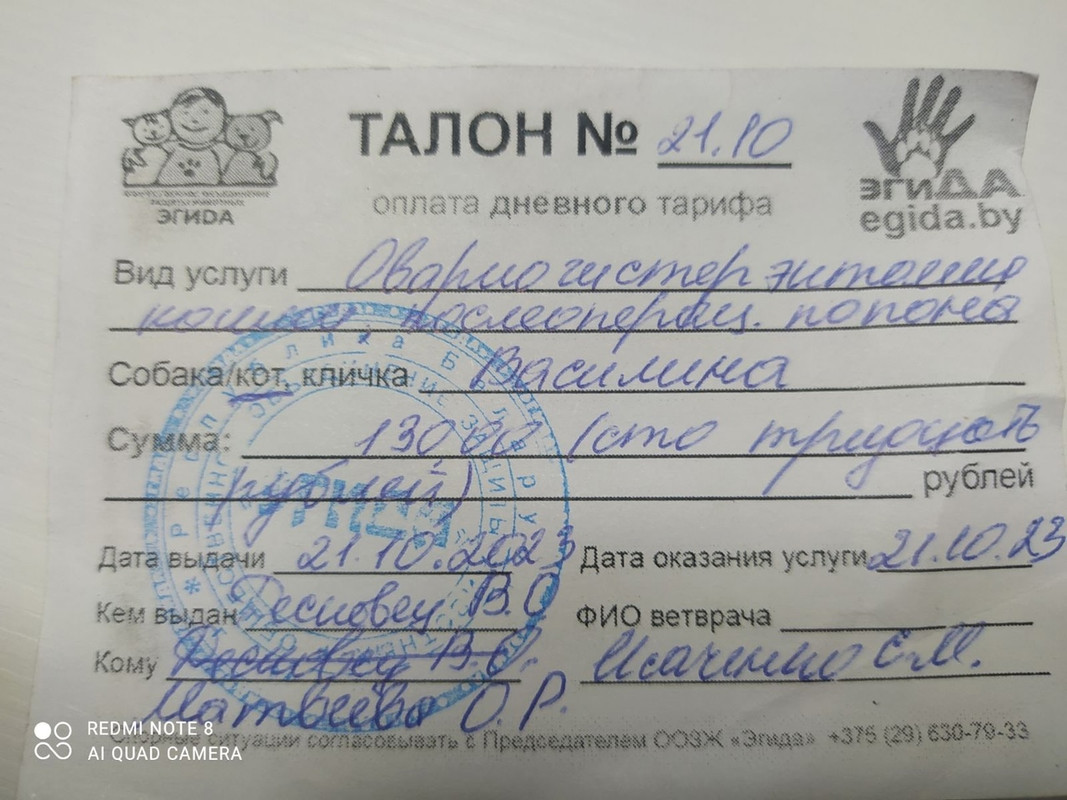 ТАЛОН № 21.10
ЭГИДА
эгиДА
egida.by
оплата дневного тарифа
Вид услуги Овариогистерэктомия
кошки послеоперац. попона
Собака/кот, кличка Василина
Сумма: 130 00 (сто тридцать
рублей) рублей
Дата выдачи 21.10.2023 Дата оказания услуги 21.10.23
Кем выдан В.О
ФИО ветврача
Кому
Исаченко С.М.
Матвеева О.Р.
Спорные ситуации согласовывать с Председателем ООЗЖ «Эгида» +375 (29) 630-79-33
Республика Беларусь
REDMI NOTE 8
AI QUAD CAMERA